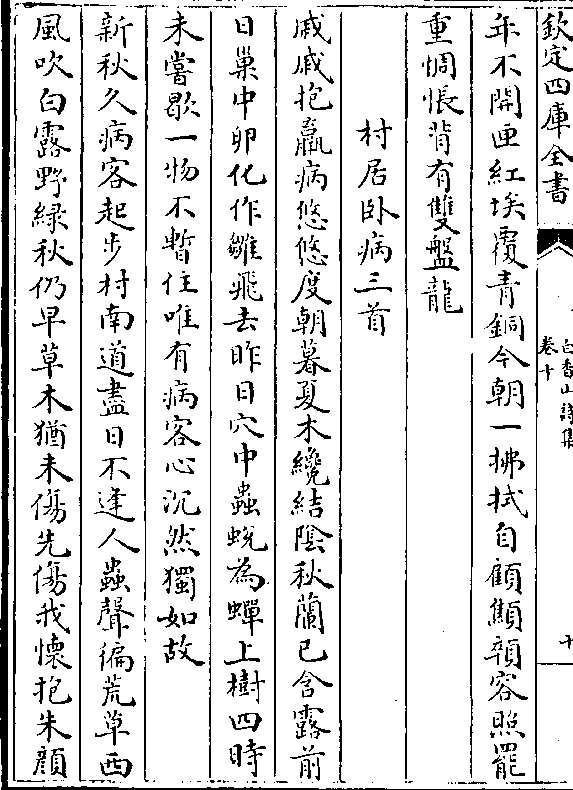 欽定四庫全書
白香山詩集
卷十
十
年不開匣紅埃覆青銅今朝一拂拭自顧顦顇容照罷
重惆悵背有雙盤龍
村居卧病三首
戚戚抱羸病悠悠度朝暮夏木纔結陰秋蘭已含露前
日巢中卵化作雛飛去昨日穴中蟲蛻為蟬上樹四時
未嘗歇一物不暫住唯有病客心沉然獨如故
新秋久病客起步村南道盡日不逢人蟲聲徧荒草西
風吹白露野綠秋仍早草木猶未傷先傷我懷抱朱顔